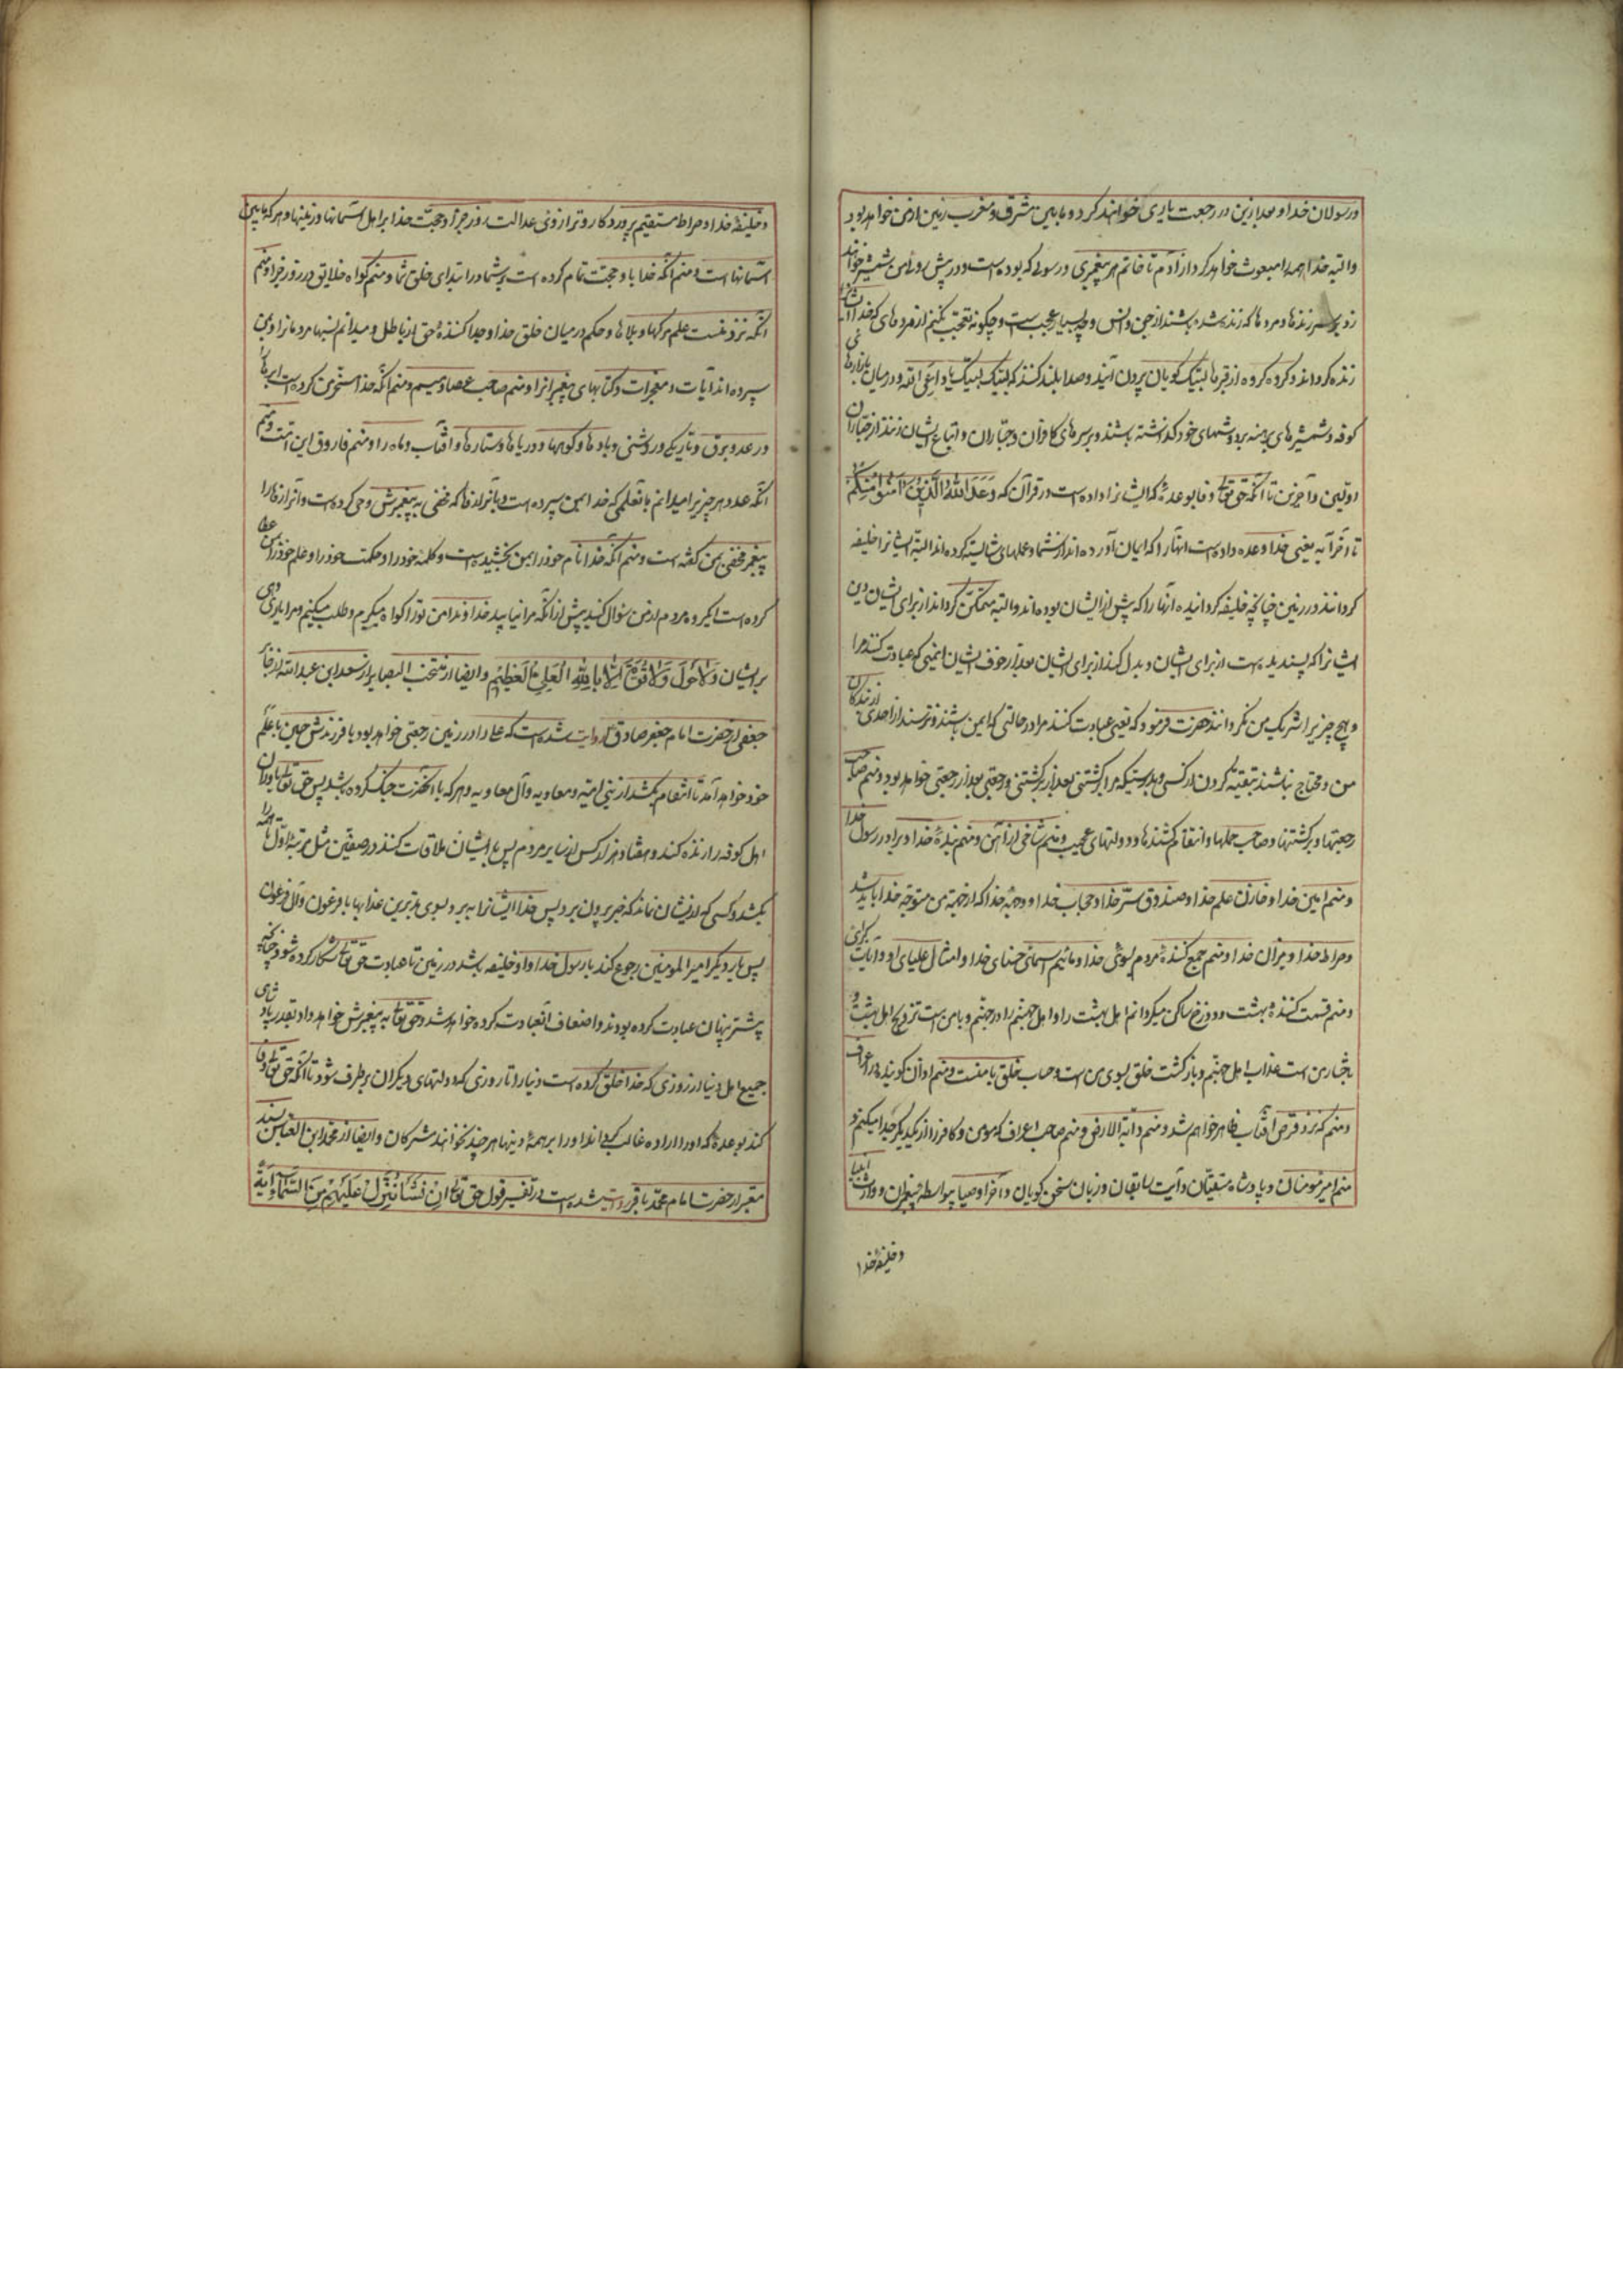 و رسولان خدا و بعد ازین در رجعت یاری خواهند کرد و مابین مشرق و مغرب زمین از من خواهد بود
و البته خدا همه را مبعوث خواهد کرد از آدم تا خاتم هر پیغمبری و رسولی که بوده است و در پیش روی من شمشیر خواهند
زد بر سر زنده‌ها و مرده‌ها که زنده شده باشند از جن و انس و چه بسیار عجیب است و چگونه تعجب نکنیم از مرده‌های که خدا ایشان
زنده گرداند و گروه گروه از قبرها لبیک گویان بیرون آیند و صدا بلند کنند که لبیک لبیک یا داعی الله و در میان بازارهای
کوفه و شمشیرهای برهنه بر دوشهای خود گذاشته باشند و بر سرهای کافران و جباران و اتباع ایشان زنند از جباران
اولین و آخرین تا آنکه حق تعالی وفا بوعدهٔ که ایشانرا داده است در قرآن که وَعَدَ اللهُ الَّذِینَ آمَنُوا مِنْکُمْ
تا آخر آیه یعنی خدا وعده داده است آنها را که ایمان آورده‌اند از شما و عملهای شایسته کرده‌اند البته ایشانرا خلیفه
گرداند در زمین چنانچه خلیفه گردانیده آنها را که پیش از ایشان بوده‌اند و البته متمکن گرداند از برای ایشان دین
ایشانرا که پسندیده است از برای ایشان و بدل کند از برای ایشان بعد از خوف ایشان ایمنی که عبادت کنند مرا
و هیچ چیز را شریک من نگردانند حضرت فرمود که یعنی عبادت کنند مرا در حالتی که ایمن باشند و نترسند از احدی از بندگان
من و محتاج نباشند بتقیه کردن از کسی و بدرستیکه مرا برگشتنی بعد از برگشتنی و رجعتی بعد از رجعتی خواهد بود و منم صاحب
رجعتها و برگشتنها و صاحب حملها و انتقام کشندها و دولتهای عجیب و منم شاخی از آهن و منم بندهٔ خدا و برادر رسول خدا
و منم امین خدا و خازن علم خدا و صندوق سرّ خدا و حجاب خدا و وجه خدا که از جهة من متوجه خدا باید شد
و صراط خدا و میزان خدا و منم جمع کنندهٔ مردم بسوی خدا و مائیم اسمای حسنای خدا و امثال علیای او و آیات کبرای
و منم قسمت کنندهٔ بهشت و دوزخ ساکن میگردانم اهل بهشت را و اهل جهنم را در جهنم و بامن است تزویج اهل بهشت و
باختیار من است عذاب اهل جهنم و بازگشت خلق بسوی من است و حساب خلق با منست و منم اذان گوینده بر اعراف
و منم که نزد قرص آفتاب ظاهر خواهم شد و منم دابة الارض و منم صاحب اعراف که مومن و کافر را از یکدیگر جدا میکنم و
منم امیر مؤمنان و پادشاه متقیان و آیت سابقان و زبان سخن گویان و آخر اوصیا پیغمبران و وارث انبیا
و خلیفهٔ خدا
و خلیفهٔ خدا و صراط مستقیم پروردگار و ترازوی عدالت روز جزا و حجت خدا بر اهل آسمانها و زمینها و هر که مابین
آسمانها است و منم آنکه خدا باو حجت تمام کرده است بر شما در ابتدای خلق شما و منم گواه خلایق در روز جزا و منم
آنکه نزد منست علم مرگها و بلاها و حکم در میان خلق خدا و جدا کنندهٔ حق از باطل و میدانم نسبهای مردمانرا و بمن
سپرده‌اند آیات و معجزات و کتابهای پیغمبرانرا و منم صاحب عصا و میسم و منم آنکه خدا مسخر من کرده است ابرها را
و رعد و برق و تاریکی و روشنی و بادها و کوهها و دریاها و ستارها و آفتاب و ماه را و منم فاروق این امت و منم
آنکه عدد هر چیز را میدانم بآنعلمی که خدا بمن سپرده است و بآنرازها که مخفی به پیغمبرش وحی کرده است و آنرازها را
پیغمبر مخفی بمن گفته است و منم آنکه خدا نام خود را بمن بخشیده است و کلمه خود را و حکمت خود را و علم خود را بمن عطا
کرده است ای گروه مردم از من سؤال کنید پیش از آنکه مرا نیابید خداوندا من تو را گواه میگیرم و طلب میکنم که مرا یاری دهی
بر ایشان وَلَا حَوْلَ وَلَا قُوَّةَ اِلَّا بِاللهِ الْعَلِیِّ الْعَظِیْمِ و ایضا از منتخب البصایر از سعد ابن عبدالله از جابر
جعفی از حضرت امام جعفر صادق روایت شده است که علی را در زمین رجعتی خواهد بود با فرزندش حسین با علم
خود خواهد آمد تا انتقام بکشد از بنی امیه و معاویه و آل معاویه و هر که با آنحضرت جنگ کرده باشد پس حق تعالی یاوران
اهل کوفه را زنده کند و هفتاد هزار کس از سایر مردم پس با ایشان ملاقات کنند در صفین مثل مرتبهٔ اول تا همه را
بکشد و کسی که از ایشان نماند که خبر بیرون برد پس خدا ایشانرا به برد بسوی بدترین عذابها با فرعون و آل فرعون
پس بار دیگر امیر المومنین رجوع کند با رسول خدا و او خلیفه باشد در زمین تا عبادت حق تعالی آشکار کرده شود چنانکه
پیشتر پنهان عبادت کرده بودند و اضعاف آنعبادت کرده خواهد شد و حق تعالی به پیغمبرش خواهد داد بقدر پادشاهی
جمیع اهل دنیا از روزی که خدا خلق کرده است دنیا را تا روزی که دولتهای دیگران برطرف شود تا آنکه حق تعالی وفا
کند بوعدهٔ که او را داده غالب گرداند او را بر همهٔ دینها هر چند نخواهند مشرکان و ایضا از محمد ابن العباس بسند
معتبر از حضرت امام محمد باقر روایت شده است در تفسیر قول حق تعالی اِنْ نَشَأْ نُنَزِّلْ عَلَیْهِمْ مِنَ السَّمَاءِ آیَةً